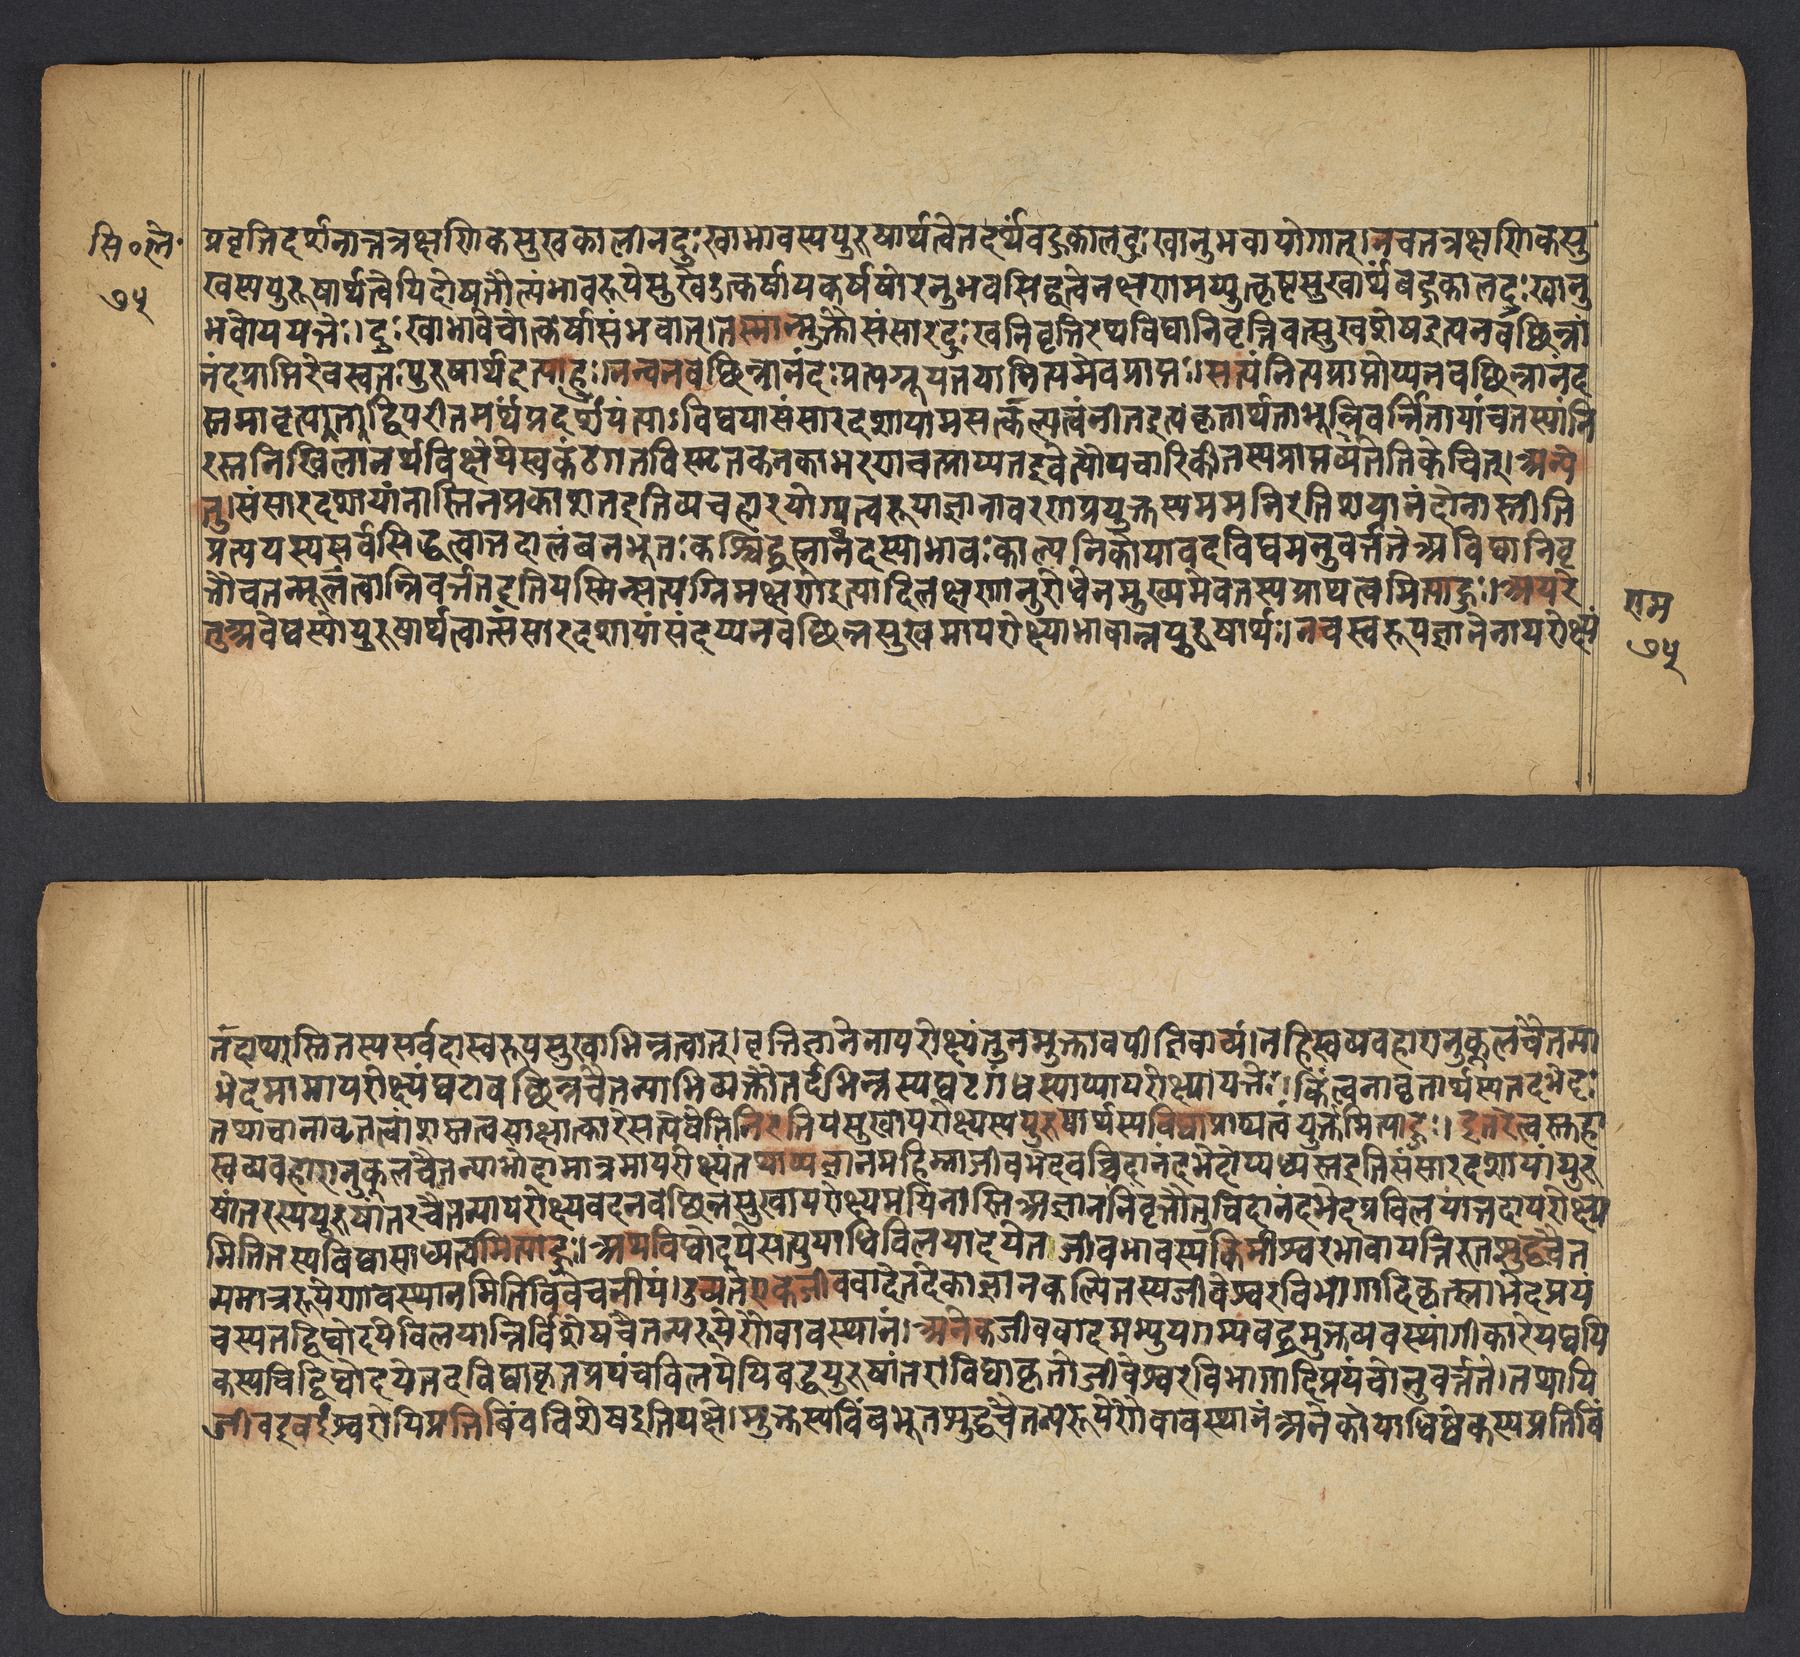 सि॰ले॰
७५
प्रवृत्तिदर्शनात्तत्रक्षणिकसुखकालीनदुःखाभावस्यपुरुषार्थत्वेतदर्थंबहुकालदुःखानुभवायोगात्।नचतत्रक्षणिकसु
खस्यपुरुषार्थत्वेपिदोषतौल्यंभावरूपेसुखेउत्कर्षापकर्षयोरनुभवसिद्धत्वेनक्षणमप्युत्कृष्टसुखार्थंबहुकालदुःखानु
भवोपपत्तेः।दुःखाभावेचोत्कर्षासंभवात्।तस्मान्मुक्तौसंसारदुःखनिवृत्तिरप्यविद्यानिवृत्तिवत्सुखशेषइत्यनवच्छिन्ना
नंदप्राप्तिरेवस्वतःपुरुषार्थइत्याहुः।नन्वनवच्छिन्नानंदःप्रत्यग्रूपतयानित्यमेवप्राप्तः।सत्यंनित्यप्राप्तोप्यनवच्छिन्नानंद
स्तमावृत्यातद्विपरीतमर्थंप्रदर्शयंत्याऽविद्ययासंसारदशायामसत्कल्पत्वंनीतइत्यकृतार्थताभून्निवर्त्तितायांचतस्यांनि
रस्तनिखिलानर्थविक्षेपेस्वकंठगतविस्मृतकनकाभरणवत्प्राप्यतइवेत्यौपचारिकीतस्यप्राप्तव्यतेतिकेचित्।अन्ये
तु।संसारदशायांनास्तिनप्रकाशतइतिव्यवहारयोग्यत्वरूपाज्ञानावरणप्रयुक्तस्यममनिरतिशयानंदोनास्तीति
प्रत्ययस्यसर्वसिद्धत्वात्तदालंबनभूतःकश्चिद्ब्रह्मानंदस्याभावःकाल्पनिकोयावदविद्यमनुवर्त्तते अविद्यानिवृ
त्तौचतन्मूलत्वान्निवर्ततइतियस्मिन्सत्यग्रिमक्षणेइत्यादिलक्षणानुरोधेनमुख्यमेवतस्यप्राप्यत्वमित्याहुः।अपरे
तुअवेद्यस्यापुरुषार्थत्वात्संसारदशायांसंदप्यनवच्छिन्नसुखमापरोक्ष्याभावान्नपुरुषार्थः।नचस्वरूपज्ञानेनापरोक्ष्यं
राम
७५
तदाप्यास्तितस्यसर्वदास्वरूपसुखाभिन्नत्वात्।वृत्तिज्ञानेनापरोक्ष्यंतुनमुक्तावपीतिवाच्यं।नहिस्वव्यवहारानुकूलचैतन्या
भेदमात्रमापरोक्ष्यंघटावच्छिन्नचैतन्याभिव्यक्तौतदभिन्नस्यघटगंधस्याप्यापरोक्ष्यापत्तेः।किंत्वनावृतार्थस्यतदभेदः
तथाचानावृतत्वांशस्तत्वसाक्षात्कारेसत्येवेतिनिरतिशयसुखापरोक्ष्यस्यपुरुषार्थस्यविद्याप्राप्यत्वंयुक्तमित्याहुः।इतरेत्वस्तु
स्वव्यवहारानुकूलचैतन्याभेदमात्रमापरोक्ष्यंतथाप्यज्ञानमहिम्नाजीवभेदवच्चिदानंदभेदोप्यध्यस्तइतिसंसारदशायांपुरु
षांतरस्यपुरुषांतरचैतन्यापरोक्ष्यवदनवच्छिन्नसुखापरोक्ष्यमपिनास्तिअज्ञाननिवृत्तौतुचिदानंदभेदप्रविलयात्तदापरोक्ष्य
मितितस्यविद्यासाध्यत्वमित्याहुः।अथविद्योदयेसत्युपाधिविलयादपेतजीवभावस्यकिमीश्वरभावापत्तिरुतशुद्धचैत
न्यमात्ररूपेणावस्थानमितिविवेचनीयं।उच्यतेएकजीववादेतदेकाज्ञानकल्पितस्यजीवेश्वरविभागादिकृत्स्नभेदप्रप
चस्यतद्विद्योदयेविलयान्निर्विशेषचैतन्यरूपेणैवावस्थानं।अनेकजीववादमभ्युपगम्यबद्धमुक्तव्यवस्थांगीकारेयद्यपि
कस्यचिद्विद्योदयेतदविद्याकृतप्रपंचविलयेपिबद्धपुरुषांतराविद्याकृतोजीवेश्वरविभागादिप्रपंचोनुवर्त्तते।तथापि
जीवइवईश्वरोपिप्रतिबिंबविशेषइतिपक्षे।मुक्तस्यबिंबभूतशुद्धचैतन्यरूपेणैवावस्थानंअनेकोपाधिष्वेकस्यप्रतिबिं